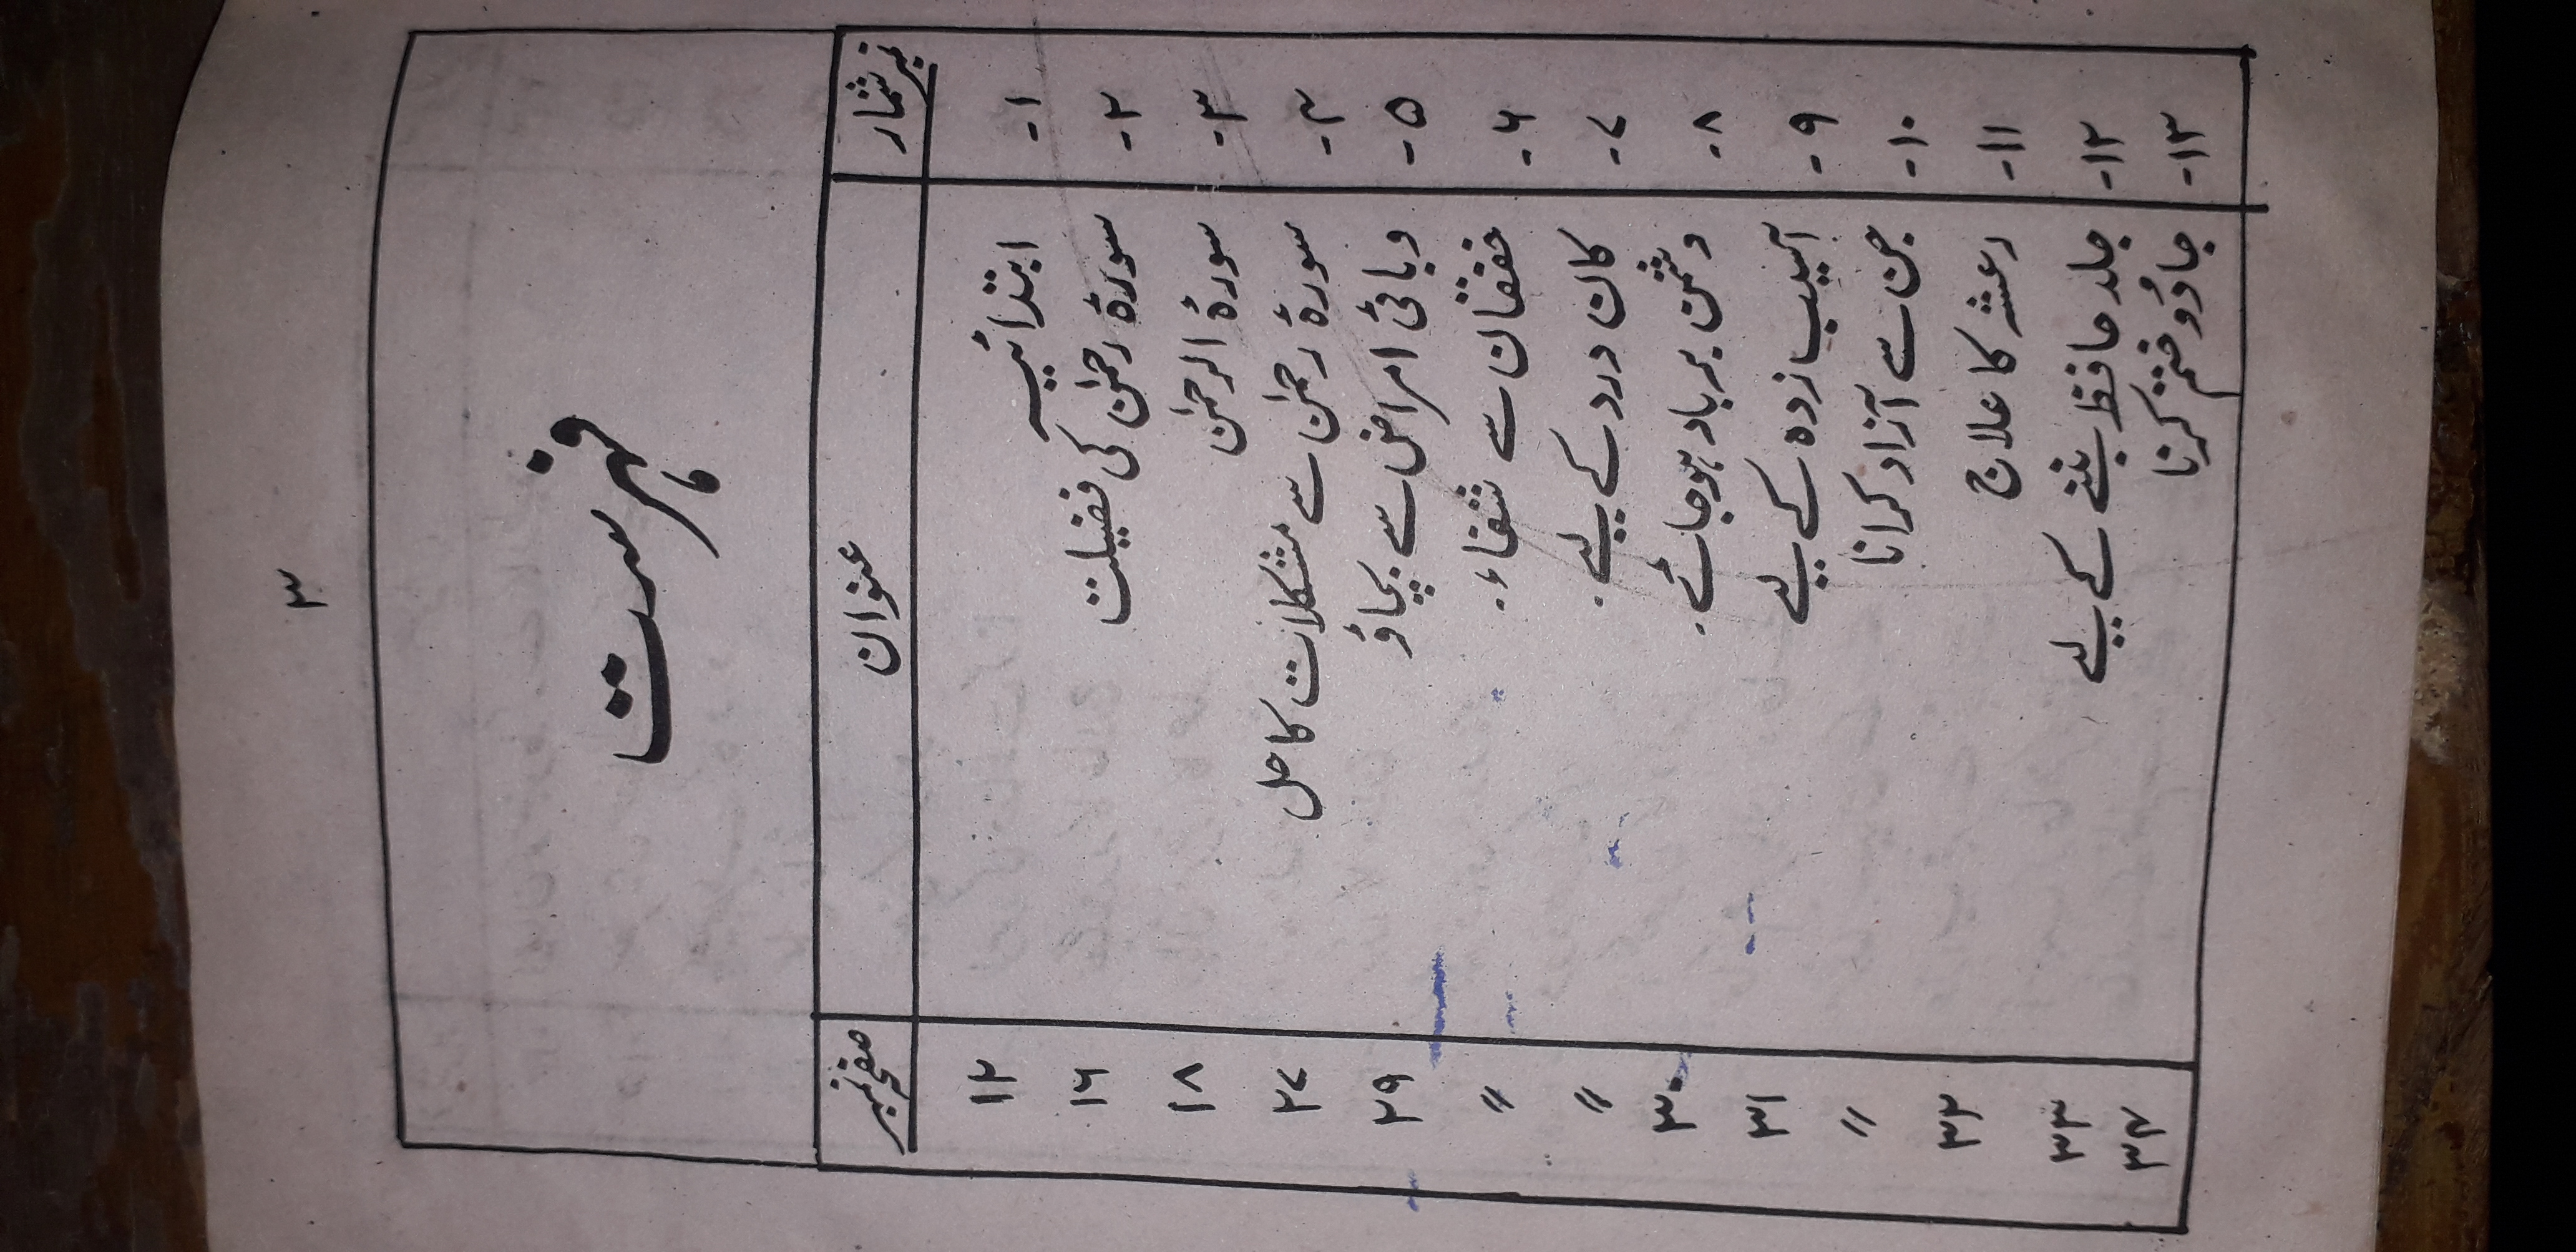 ۳
فہرست
نمبر شمار عنوان صفحہ نمبر
۱- ابتدائیہ ۱۲
۲- سورۃ رحمٰن کی فضیلت ۱۶
۳- سورۃ الرحمٰن ۱۸
۴- سورۃ رحمٰن سے مشکلات کا حل ۲۷
۵- وبائی امراض سے بچاؤ ۲۹
۶- خفقان سے شفاء۔ "
۷- کان درد کے لیے۔ "
۸- دشمن برباد ہو جائے۔ ۳۰
۹- آسیب زدہ کے لیے ۳۱
۱۰- جن سے آزاد کرانا "
۱۱- رعشہ کا علاج ۳۲
۱۲- جلد حافظ بننے کے لیے ۳۳
۱۳- جادُو ختم کرنا ۳۴